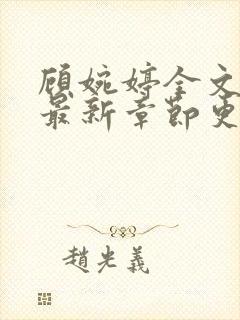 顾婉婷全文
最新章节更
趙光義